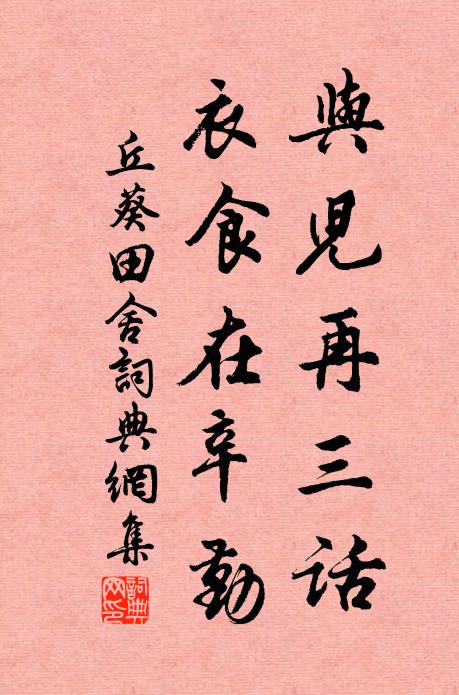 與兒再三話
衣食在辛勤
丘葵田舍詞典網集
詞典網印